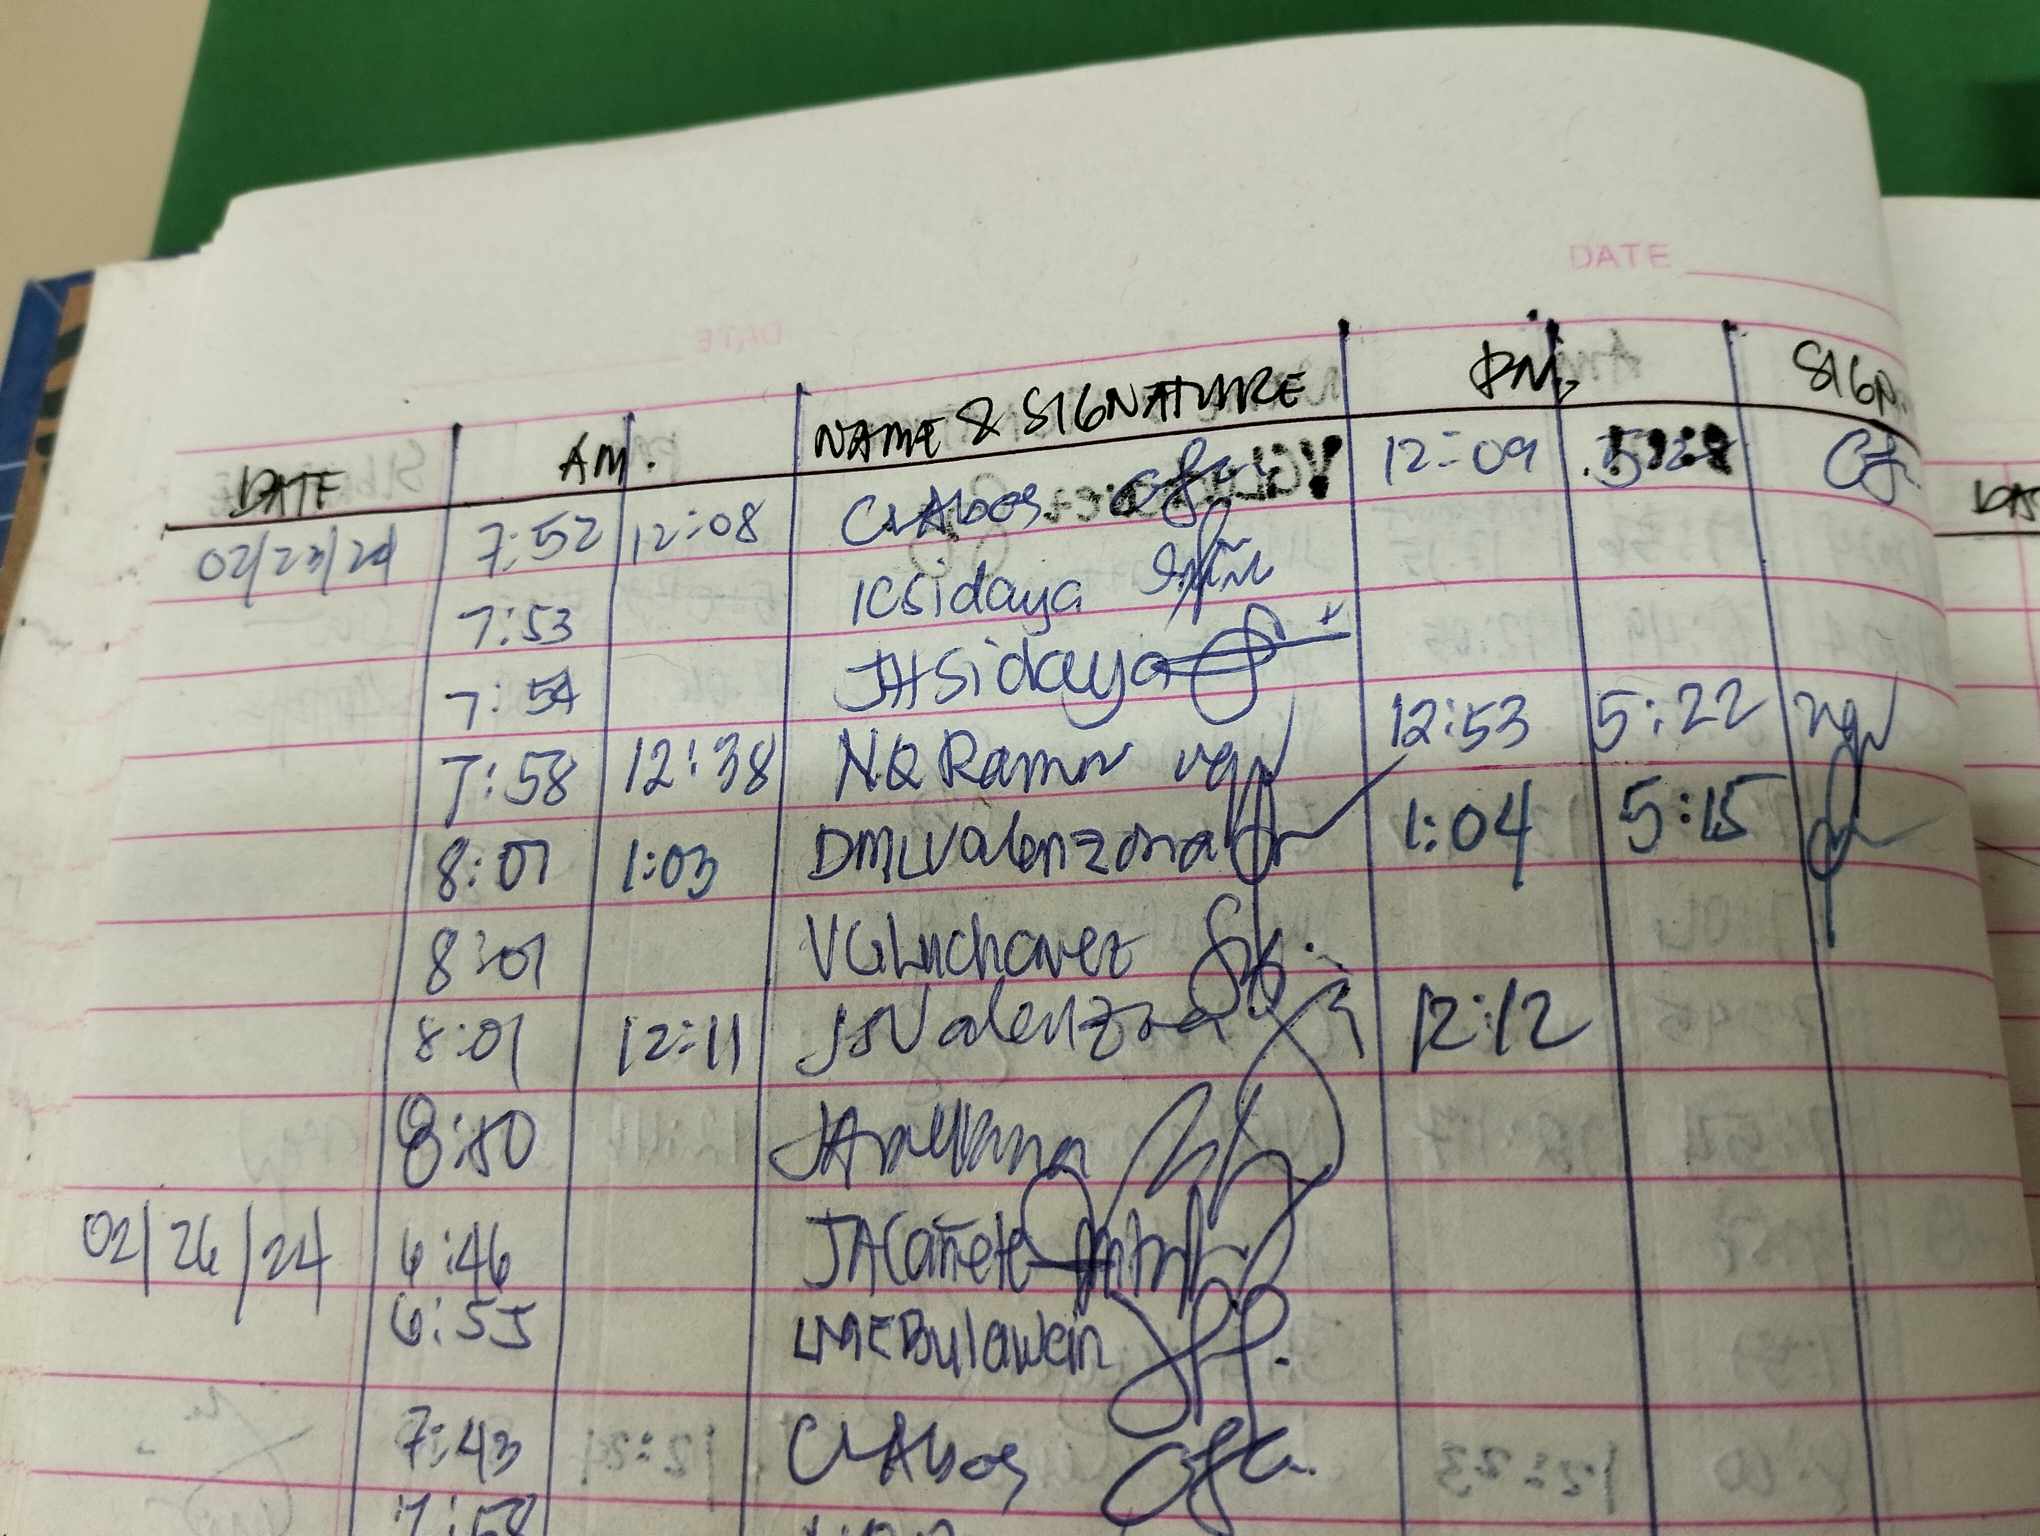 DATE
DATE AM. NAME & SIGNATURE PM. SIGN.
02/23/24 7:52 12:08 CLAbos 12:09
7:53 ICSidaya
7:54 JHSidaya
7:58 12:38 NQ Ramos 12:53 5:22
8:01 1:03 DMValenzona 1:04 5:15
8:01 VGLuchavez
8:01 12:11 JSValenzona 12:12
8:10
02/26/24 6:46 JACañete
6:55 LMEBulawin
7:43 CLAbos
7:58